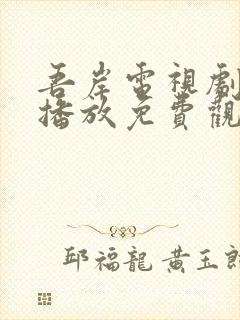 吾岸電視劇
播放免費觀
邱福龍 黃玉郎